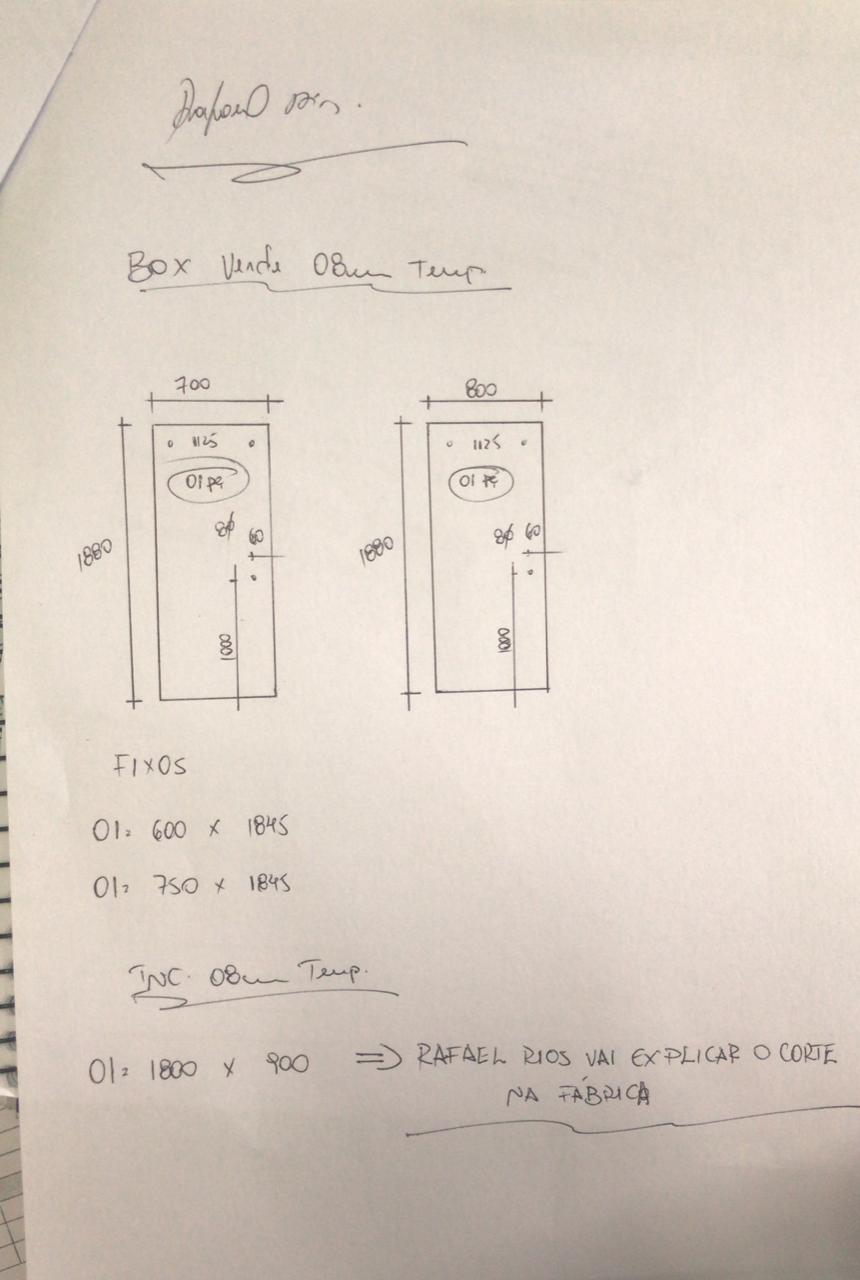 Rafael Rios.
BOX Verde 08mm Temp.
700
800
1125
1125
01 Pç
01 Pç
8ϕ 60
8ϕ 60
1880
1880
1000
1000
FIXOS
01= 600 x 1845
01= 750 x 1845
INC. 08mm Temp.
01= 1800 x 900 => RAFAEL RIOS VAI EXPLICAR O CORTE
NA FÁBRICA